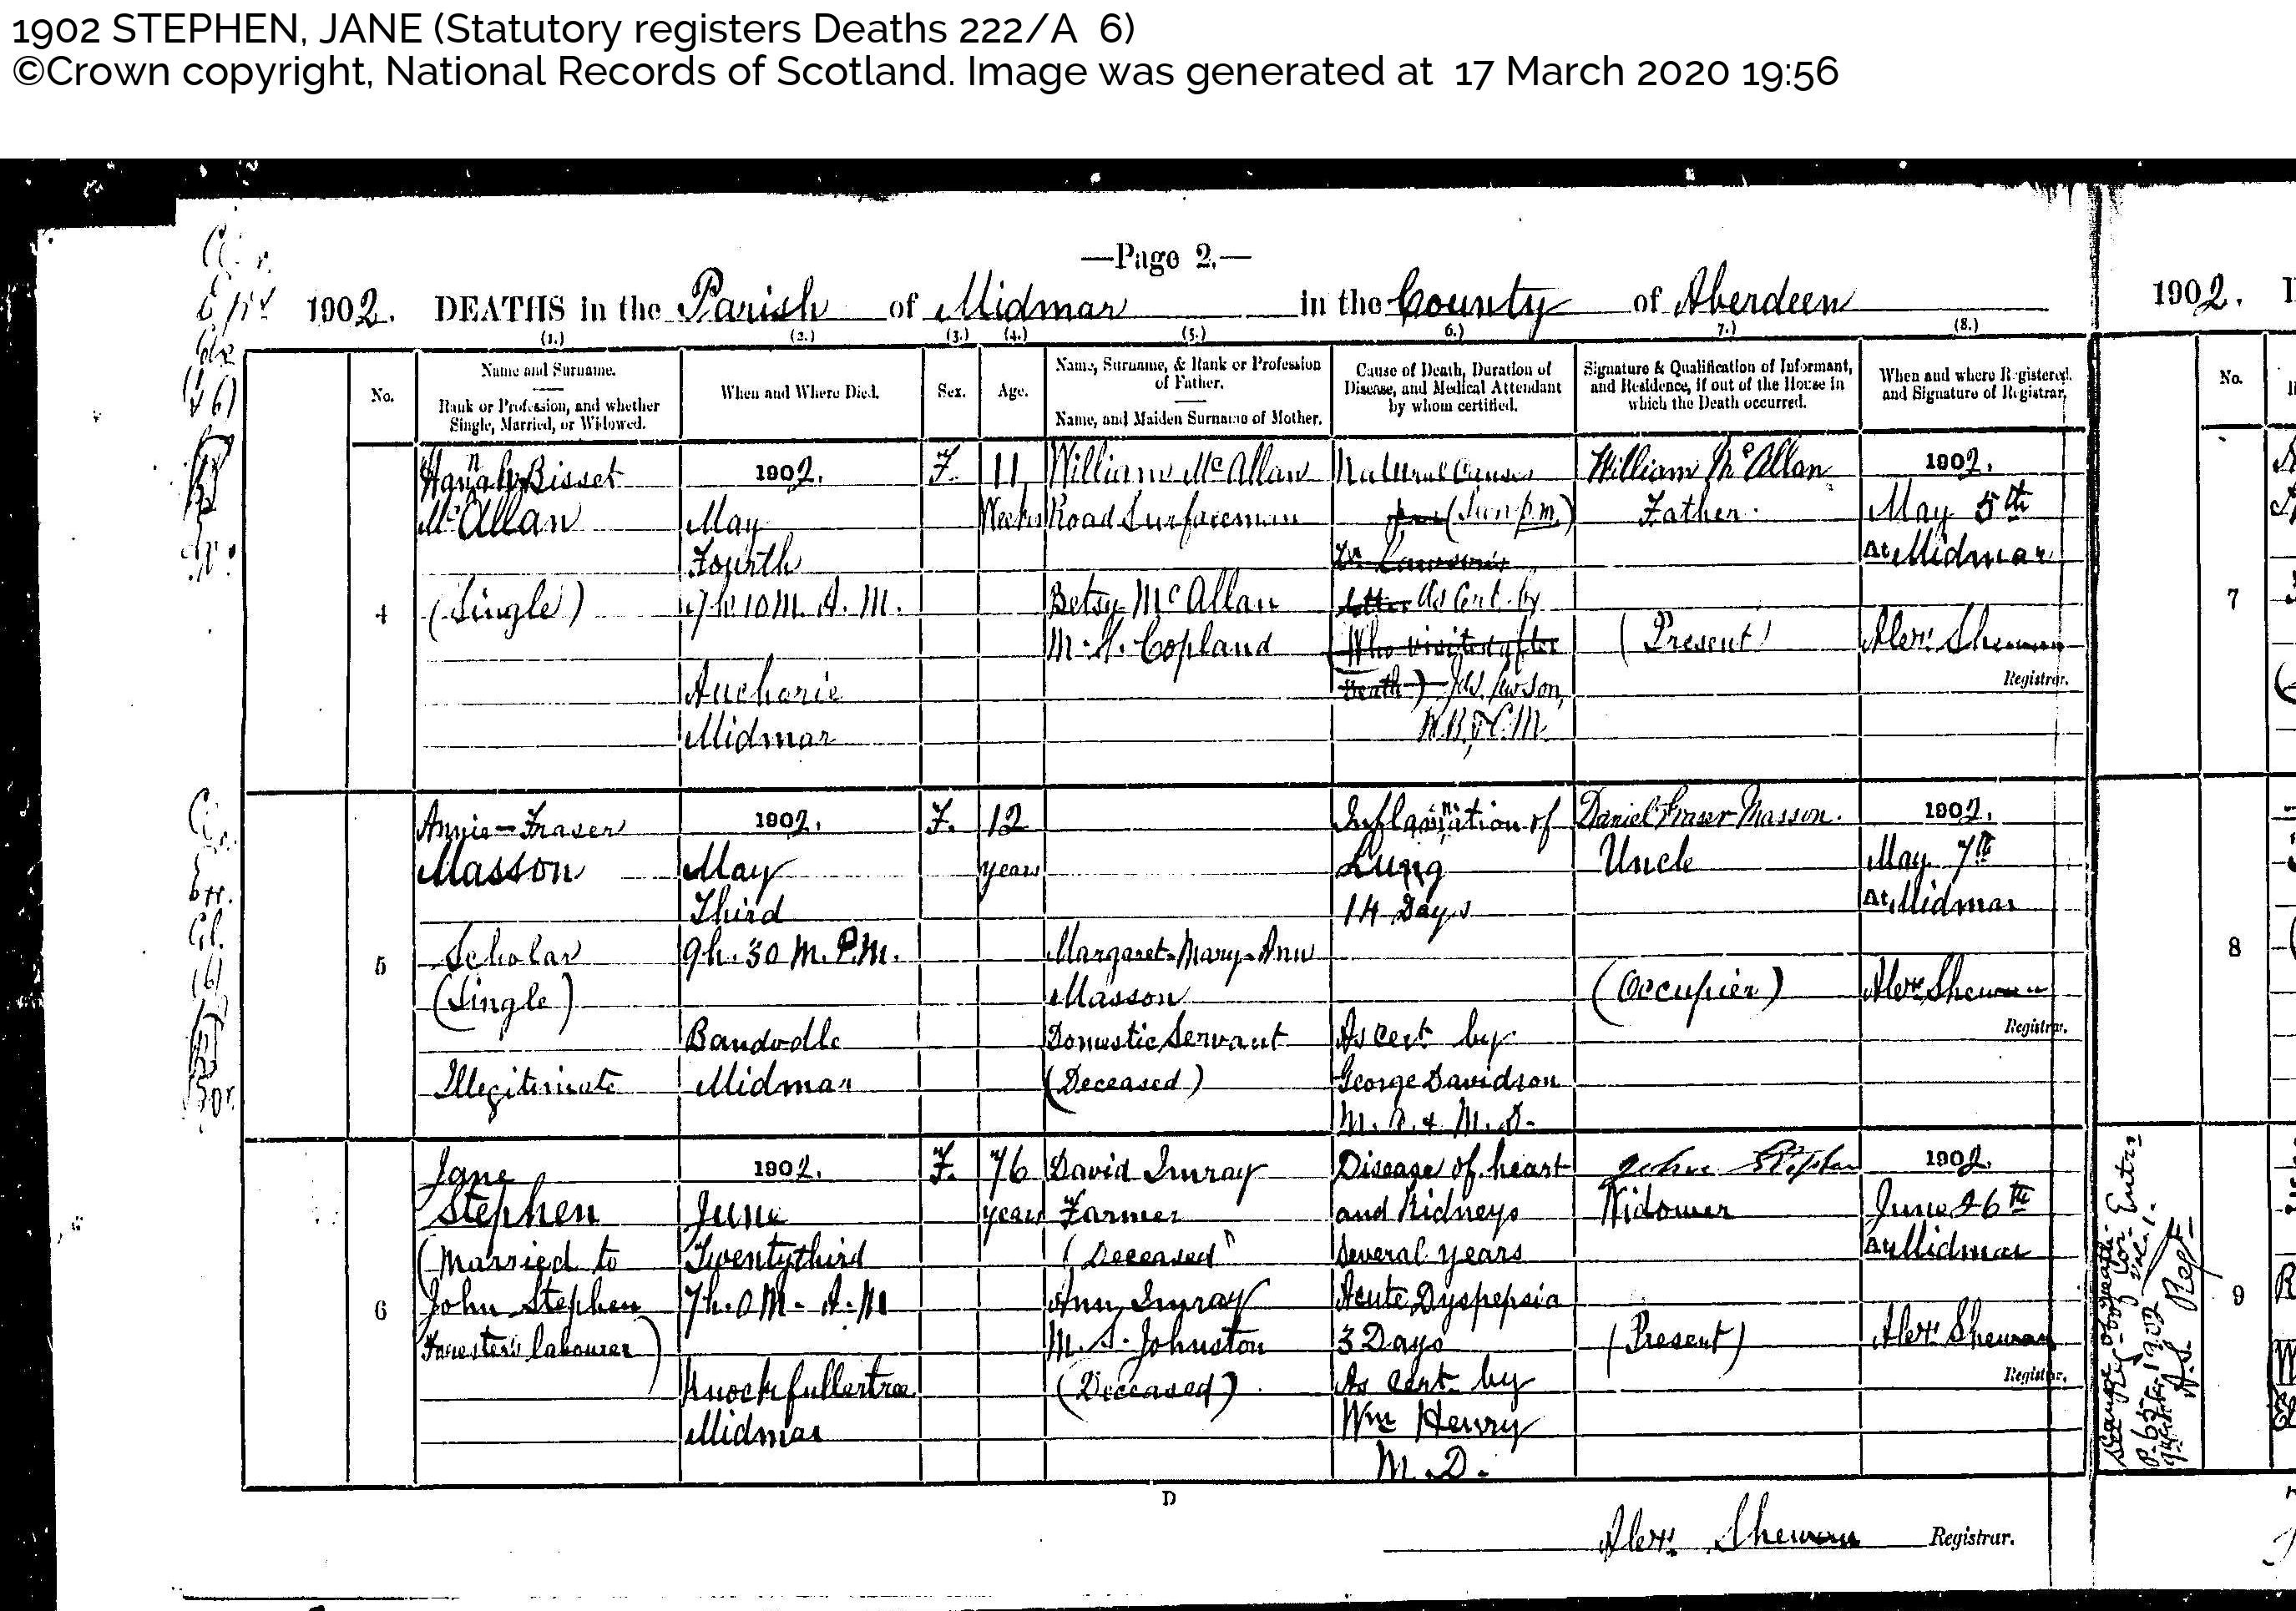 1902 STEPHEN, JANE (Statutory registers Deaths 222/A 6)
©Crown copyright, National Records of Scotland. Image was generated at 17 March 2020 19:56
—Page 2.—
1902. DEATHS in the Parish of Midmar in the County of Aberdeen
1902.
(1.) (2.) (3.) (4.) (5.) 6.) 7.) (8.)
No.
Name and Surname.
Rank or Profession, and whether
Single, Married, or Widowed.
When and Where Died.
Sex.
Age.
Name, Surname, & Rank or Profession
of Father.
Name, and Maiden Surname of Mother.
Cause of Death, Duration of
Disease, and Medical Attendant
by whom certified.
Signature & Qualification of Informant,
and Residence, if out of the House in
which the Death occurred.
When and where Registered,
and Signature of Registrar.
No.
4
Hannah Bisset
McAllan
(Single)
1902.
May
Fourth
7h. 10 M. A. M.
Aucharie
Midmar
F.
11
Weeks
William McAllan
Road Surfaceman
Betsy McAllan
M. S. Copland
Natural Causes
(Seen p.m.)
Dr Lawson's
letter As Cert. by
(Who visited after
death) Jas. Lawson,
M.B., & C.M.
William McAllan
Father.
(Present)
1902.
May 5th
At Midmar
Alexr. Shewan
Registrar.
7
5
Annie-Fraser
Masson
Scholar
(Single)
Illegitimate
1902.
May
Third
9h. 30 M. P.M.
Bandodle
Midmar
F.
12
years
Margaret-Mary-Ann
Masson
Domestic Servant
(Deceased)
Inflammation of
Lung
14 Days
As Cert. by
George Davidson
M. A. & M. D.
Daniel Fraser Masson.
Uncle
(Occupier)
1902.
May 7th
At Midmar
Alexr. Shewan
Registrar.
8
6
Jane
Stephen
(Married to
John Stephen
Forester's labourer)
1902.
June
Twentythird
7h. 0 M. A. M
Knockfullertree
Midmar
F.
76
years
David Imray
Farmer
(Deceased)
Ann Imray
M. S. Johnston
(Deceased)
Disease of heart
and Kidneys
Several years
Acute Dyspepsia
3 Days
As cert. by
Wm Henry
M. D.
John Stephen
Widower
(Present)
1902.
June 26th
At Midmar
Alexr. Shewan
Registrar.
9
D
Alexr. Shewan Registrar.